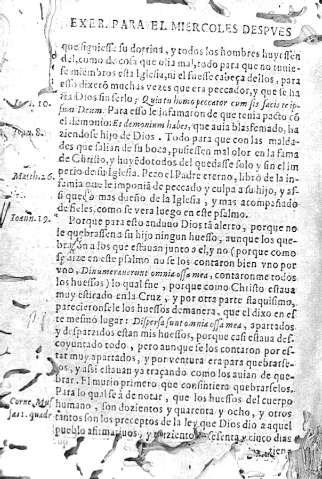 EXER. PARA EL MIERCOLES DESPVES
que siguiesse su dotrina, y todos los hombres huyessen
del, como de cosa que olia mal, todo para que no tuuie-
se miembros esta Iglesia, ni el fuesse cabeça dellos, para
esso dixerõ muchas vezes que era peccador, y que se ha
zia Dios sin serlo; Quia tu homo peccator cum sis facis te ip-
sum Deum. Para esto le infamaron de que tenia pacto cõ
el demonio: Et demonium habes, que auia blasfemado, ha
ziendose hijo de Dios. Todo para que con las malda-
des que salian de su boca, pusiessen mal olor en la fama
de Christo, y huyẽdo todos del quedasse solo y sin el im
perio de su Iglesia. Pero el Padre eterno, librô de la in-
famia que le imponiã de peccado y culpa a su hijo, y as-
si quedo mas dueño de la Iglesia, y mas acompañado
de fieles, como se vera luego en este psalmo.
Porque para esto anduuo Dios tã alerto, porque no
le quebrassen a su hijo ningun huesso, aunque los que-
braron a los que estauan junto a el, y no (porque como
se dize en este psalmo no se los contaron bien vno por
vno, Dinumerauerunt omnia ossa mea, contaron me todos
los huessos) lo qual fue, porque como Christo estaua
muy estirado en la Cruz, y por otra parte flaquissimo,
parecieronsele los huessos de manera, que el dixo en es
te mesmo lugar: Dispersa sunt omnia ossa mea, apartados
y desparzidos estan mis huessos, porque casi estaua des-
coyuntado todo, pero aunque se los contaron por es-
tar muy apartados, y por ventura era para quebrarse-
los, y assi estauan ya traçando como los auian de que-
brar. El murio primero que consintiera quebrarselos.
Para lo qual es de notar, que los huessos del cuerpo
humano, son dozientos y quarenta y ocho, y otros
tantos son los preceptos de la ley que Dios dio a aquel
pueblo afirmatiuos, y trezientos y sesenta y cinco dias
tiene
10.
Ioan. 8.
Matth. 26.
Ioann. 19.
Corne. Mus